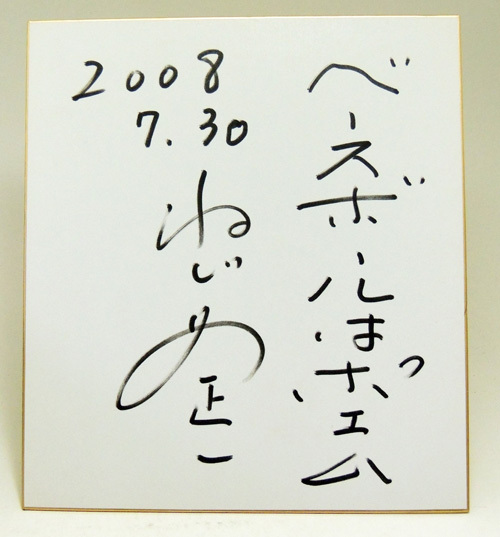 ベースボールはポエム
2008
7.30
ねじめ正一